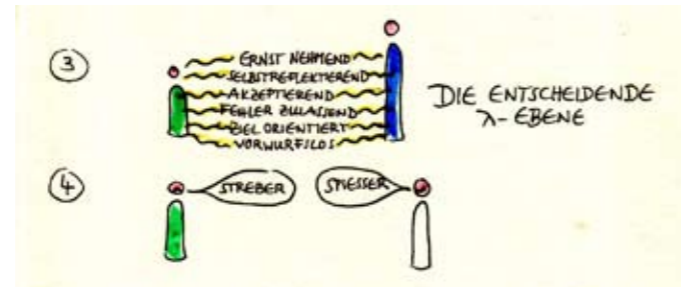 3
ERNST NEHMEND
SELBSTREFLEKTIEREND
AKZEPTIEREND
FEHLER ZULASSEND
ZIEL ORIENTIERT
VORWURFSLOS
DIE ENTSCHEIDENDE
λ-EBENE
4
STREBER
SPIESSER